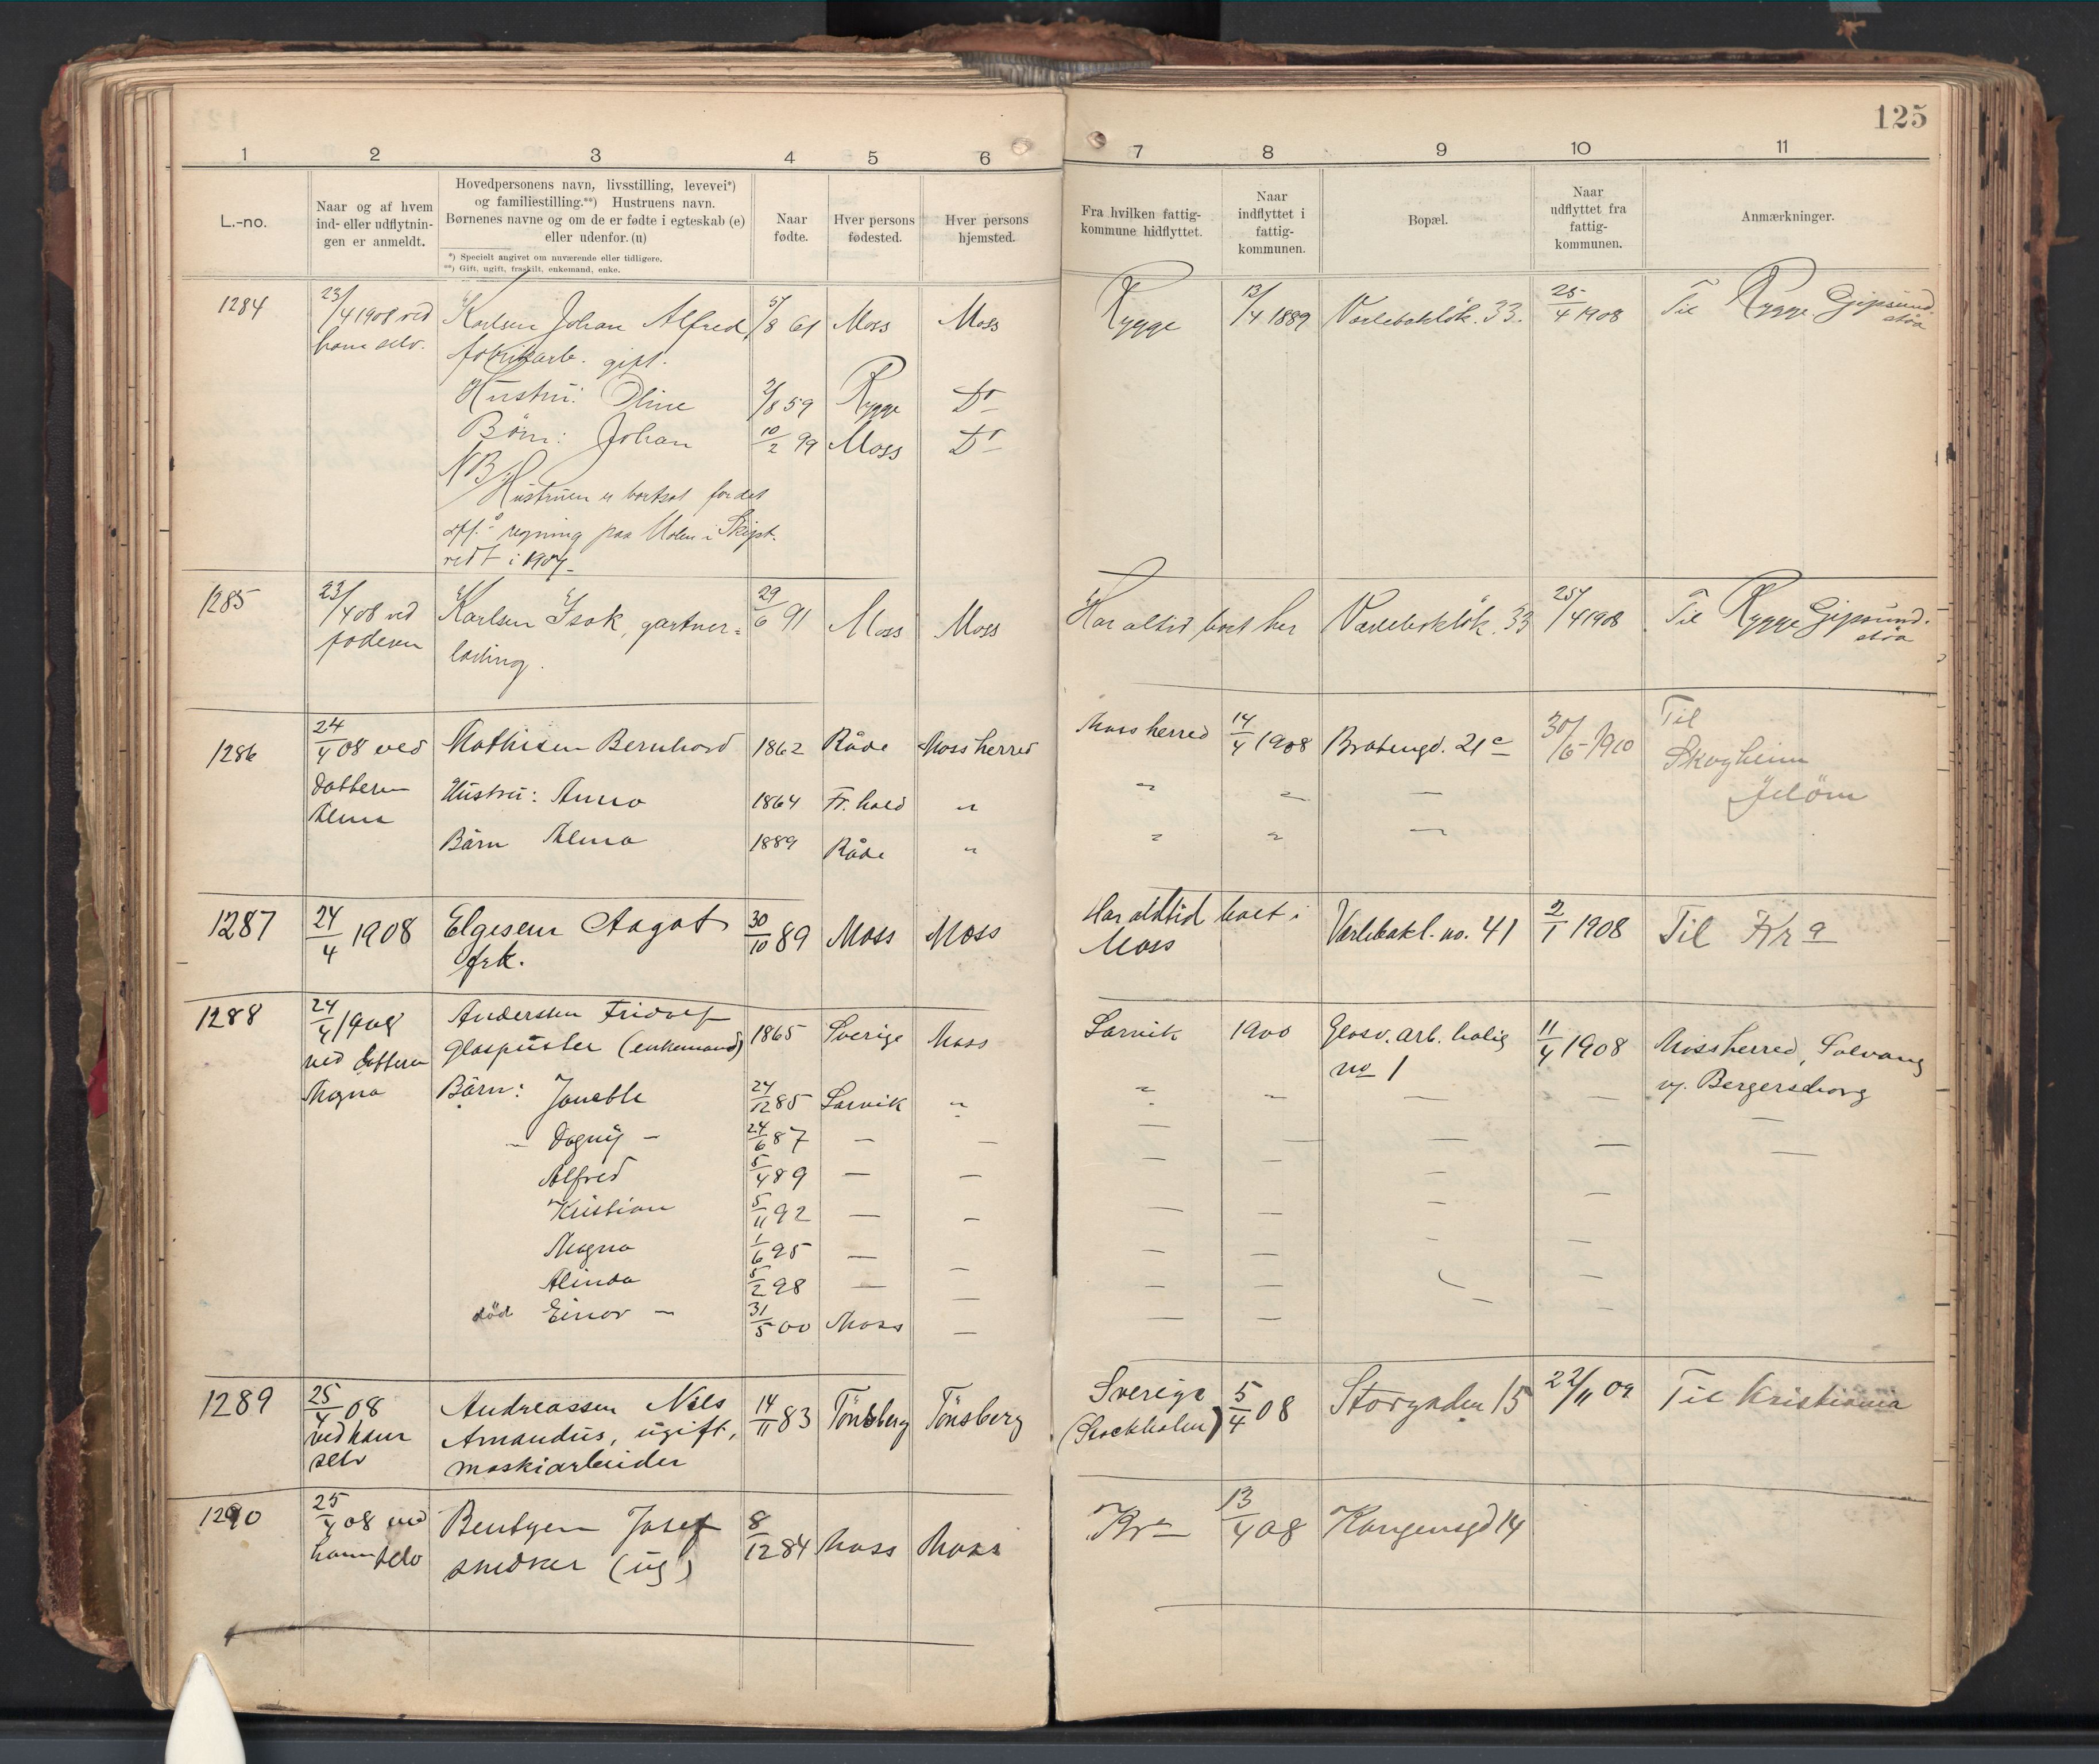 125
1 2 3 4 5 6 7 8 9 10 11
L.-no.
Naar og af hvem
ind- eller udflytnin-
gen er anmeldt.
Hovedpersonens navn, livsstilling, levevei*)
og familiestilling.**) Hustruens navn.
Børnenes navne og om de er fødte i egteskab (e)
eller udenfor. (u)
*) Specielt angivet om nuværende eller tidligere.
**) Gift, ugift, fraskilt, enkemand, enke.
Naar
fødte.
Hver persons
fødested.
Hver persons
hjemsted.
Fra hvilken fattig-
kommune hidflyttet.
Naar
indflyttet i
fattig-
kommunen.
Bopæl.
Naar
udflyttet fra
fattig-
kommunen.
Anmærkninger.
1284 23/4 1908 ved Karlsen Johan Alfred 5/8 61 Moss Moss Rygge 13/4 1889 Varlebakløk. 33. 25/4 1908 Til Rygge Gipsund
ham selv. fabrikarb. gift. støa
Hustru: Oline 2/8 59 Rygge Do
Børn: Johan 10/2 99 Moss Do
NB. Hustruen er bortsat for det
off. regning paa i Skipt-
vedt i 1907.
1285 23/4 08 ved Karlsen Isak, gartner- 29/6 91 Moss Moss Har altid boet her Varlebakløk. 33 25/4 1908 Til Rygge Gipsund.
faderen lærling. støa
1286 24/4 08 ved Mathisen Bernhard 1862 Råde Moss herred Moss herred 14/4 1908 Bratengd. 21c 30/6 1910 Til
Skogheim
Jeløen
datteren Hustru: Anna 1864 Fr.hald " " " —
Alma Børn Alma 1889 Råde " " " —
1287 24/4 1908 Elgesem Aagot 30/10 89 Moss Moss Har altid boet i Varlebakl. no. 41 2/1 1908 Til Kr a
frk. Moss
1288 24/4 1908 Andersen Fridolf 1865 Sverige Moss Larvik 1900 Glasv. arb. bolig 11/4 1908 Mossherred, Solvang
ved datteren glaspuster (enkemand) no 1 v. Bergersborg
Magna Børn: Janette 24/12 85 Larvik " " — — — —
— Dagny — 24/6 87 — — — — — — —
Alfred 5/4 89 — — — — —
Kristian 5/11 92 — — — — — —
Magna 1/6 95 — — — — — —
Alinda 5/2 98 — — — — — —
død Einar — 31/5 00 Moss — — — — —
1289 25/4 08 Andreassen Nils 14/11 83 Tønsberg Tønsberg Sverige 5/4 08 Storgaden 15 22/11 09 Til Kristiania
ved ham Amandus, ugift, (Stockholm)
selv maskiarbeider
1290 25/4 08 ved Bentzen Josef 8/12 84 Moss Moss Kra 13/4 08 Kongensgd 14
ham selv snedker (ug)